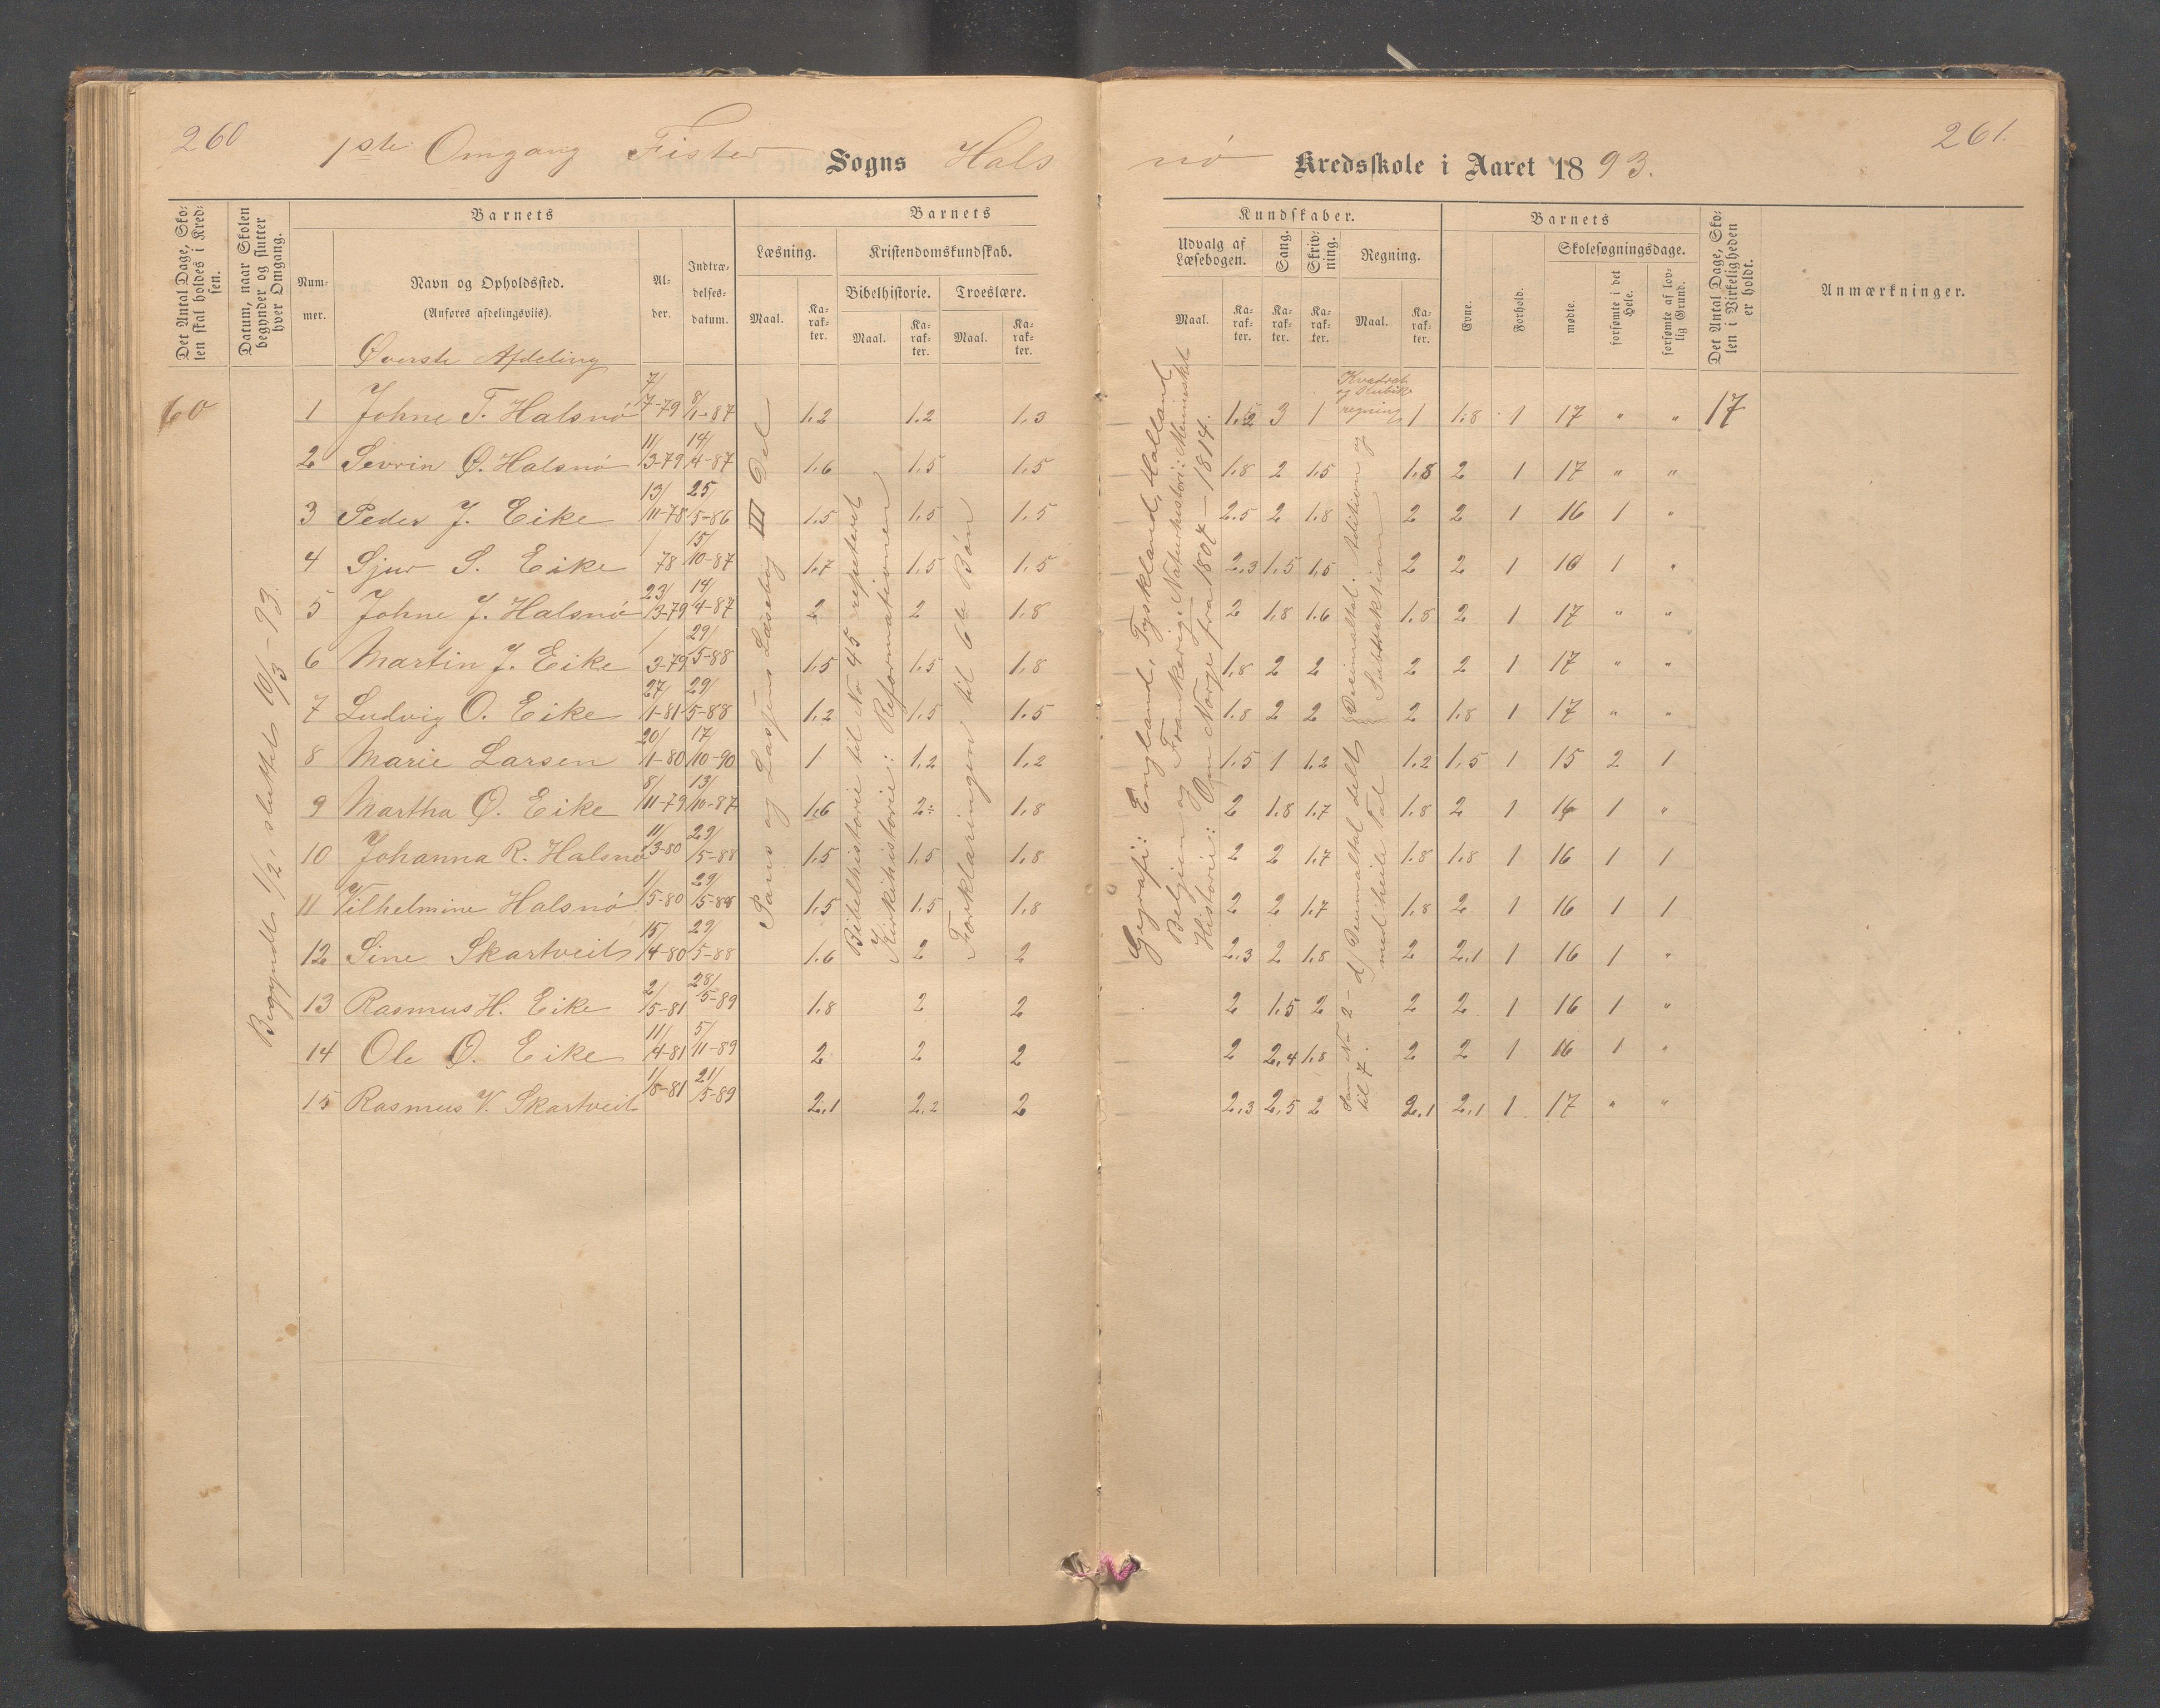 260
1ste Omgang Fister Sogns Hals
nö Kredsskole i Aaret 1893.
261.
Det Antal Dage, Sko-
len skal holdes i Kred-
sen.
Datum, naar Skolen
begynder og slutter
hver Omgang.
Barnets
Num-
mer.
Navn og Opholdssted.
(Anføres afdelingsviis).
Al-
der.
Indtræ-
delses-
datum.
Barnets
Læsning.
Maal.
Ka-
rak-
ter.
Kristendomskundskab.
Bibelhistorie.
Maal.
Ka-
rak-
ter.
Troeslære.
Maal.
Ka-
rak-
ter.
Kundskaber.
Udvalg af
Læsebogen.
Maal.
Ka-
rak-
ter.
Sang.
Ka-
rak-
ter.
Skriv-
ning.
Ka-
rak-
ter.
Regning.
Maal.
Ka-
rak-
ter.
Barnets
Evne.
Forhold.
Skolesøgningsdage.
mødte.
forsømte i det
Hele.
forsømte af lov-
lig Grund.
Det Antal Dage, Sko-
len i Virkeligheden
er holdt.
Anmærkninger.
Øverste Afdeling
60
Begyndte 1/2, sluttet 10/3 - 93.
Pauss og Lassens Læsebog III Del
Bibelhistorie til No 45 repeteret
Kirkehistorie: Reformationen
Forklaringen til 6te Bøn
Gegrafi: England, Tyskland, Holland,
Belgien og Frankerig. Naturhistori: Mennesket
Historie: Om Norge fra 1807 - 1814.
Kvadrat
og Kubik
regning
Som No 2 - d/ Decimaltal delt
til 7. med heile Tal
Decimaltal. Addition og
Subtraktion
1 Johne T. Halsnö 7/7-79 8/1-87 1.2 1.2 1.3 1.2 3 1 1 1.8 1 17 " " 17
2 Sevrin Ø. Halsnö 11/3-79 14/4-87 1.6 1.5 1.5 1.8 2 1.5 1.8 2 1 17 " "
3 Peder J. Eike 13/11-78 25/5-86 1.5 1.5 1.5 2.5 2 1.8 2 2 1 16 1 "
4 Sjur S. Eike / 78 15/10-87 1.7 1.5 1.5 2.3 1.5 1.5 2 2 1 16 1 "
5 Johne J. Halsnö 23/3-79 14/4-87 2 2 1.8 2 1.8 1.6 1.5 2 1 17 " "
6 Martin J. Eike / 3-79 29/5-88 1.5 1.5 1.8 1.8 2 2 2 2 1 17 " "
7 Ludvig O. Eike 27/1-81 29/5-88 1.2 1.5 1.5 1.8 2 2 2 1.8 1 17 " "
8 Marie Larsen 20/1-80 17/10-90 1 1.2 1.2 1.5 1 1.2 1.2 1.5 1 15 2 1
9 Martha O. Eike 8/11-79 13/10-87 1.6 2 1.8 2 1.8 1.7 1.8 2 1 16 1 "
10 Johanna R. Halsnö 11/3-80 29/5-88 1.5 1.5 1.8 2 2 1.7 1.8 1.8 1 16 1 1
11 Vilhelmine Halsnö 1/5-80 29/5-88 1.5 1.5 1.8 2 2 1.7 1.8 2 1 16 1 1
12 Sine Skartveit 15/4-80 29/5-88 1.6 2 2 2.3 2 1.8 2 2.1 1 16 1 "
13 Rasmus H. Eike 2/5-81 28/5-89 1.8 2 2 2 1.5 2 2 2 1 16 1 "
14 Ole O. Eike 11/4-81 5/11-89 2 2 2 2 2.4 1.8 2 2 1 16 1 "
15 Rasmus V. Skartveit 1/5-81 21/5-89 2.1 2.2 2 2.3 2.5 2 2.1 2.1 1 17 " "